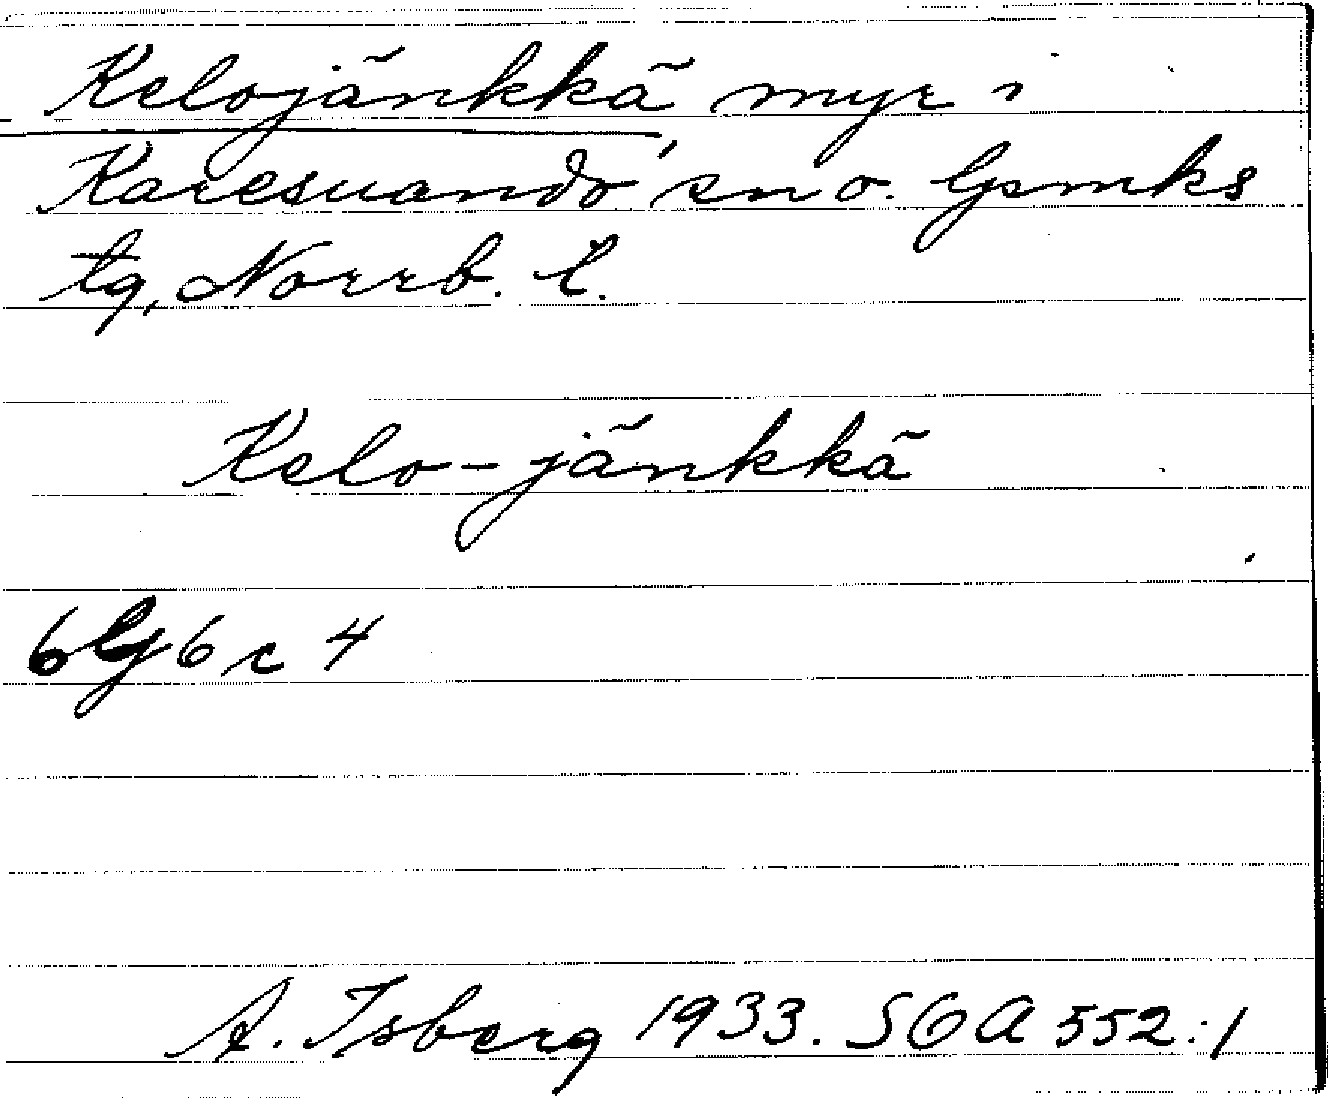 Kelojänkkä, myr i
Karesuando sn o. Gsmks
tg, Norrb. l.
Kelo-jänkkä
6G6c4
A. Isberg 1933. SOA 552:1